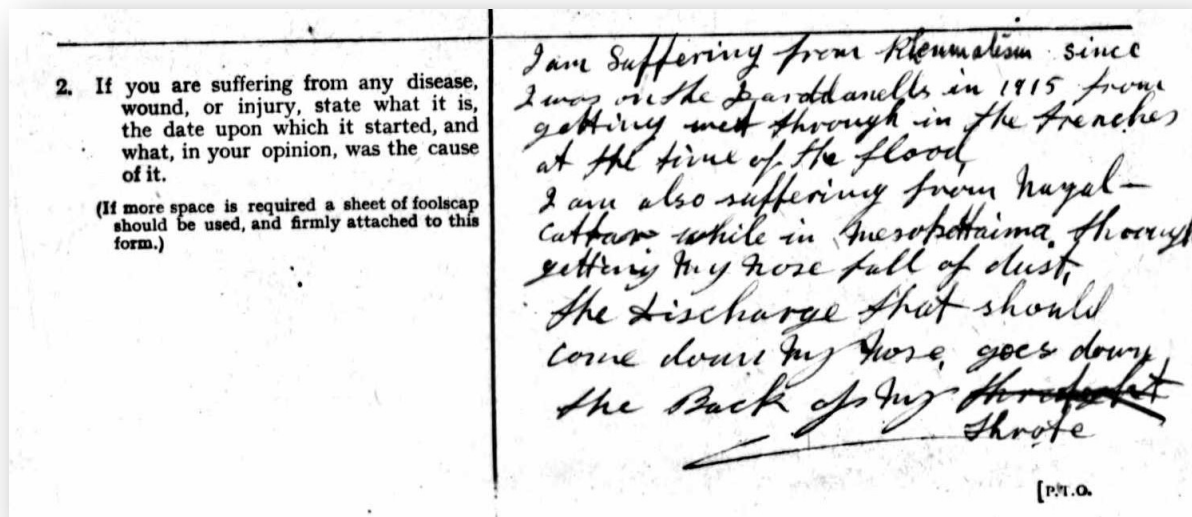 2. If you are suffering from any disease,
wound, or injury, state what it is,
the date upon which it started, and
what, in your opinion, was the cause
of it.
(If more space is required a sheet of foolscap
should be used, and firmly attached to this
form.)
I am Suffering from Rheumatism since
I was on the Darddanells in 1915 from
getting wet through in the trenches
at the time of the flood
I am also suffering from Nayal-
Cattar while in Mesopottaima through
getting my nose full of dust,
the discharge that should
come down my nose goes down
the Back of my
throte
[P.T.O.